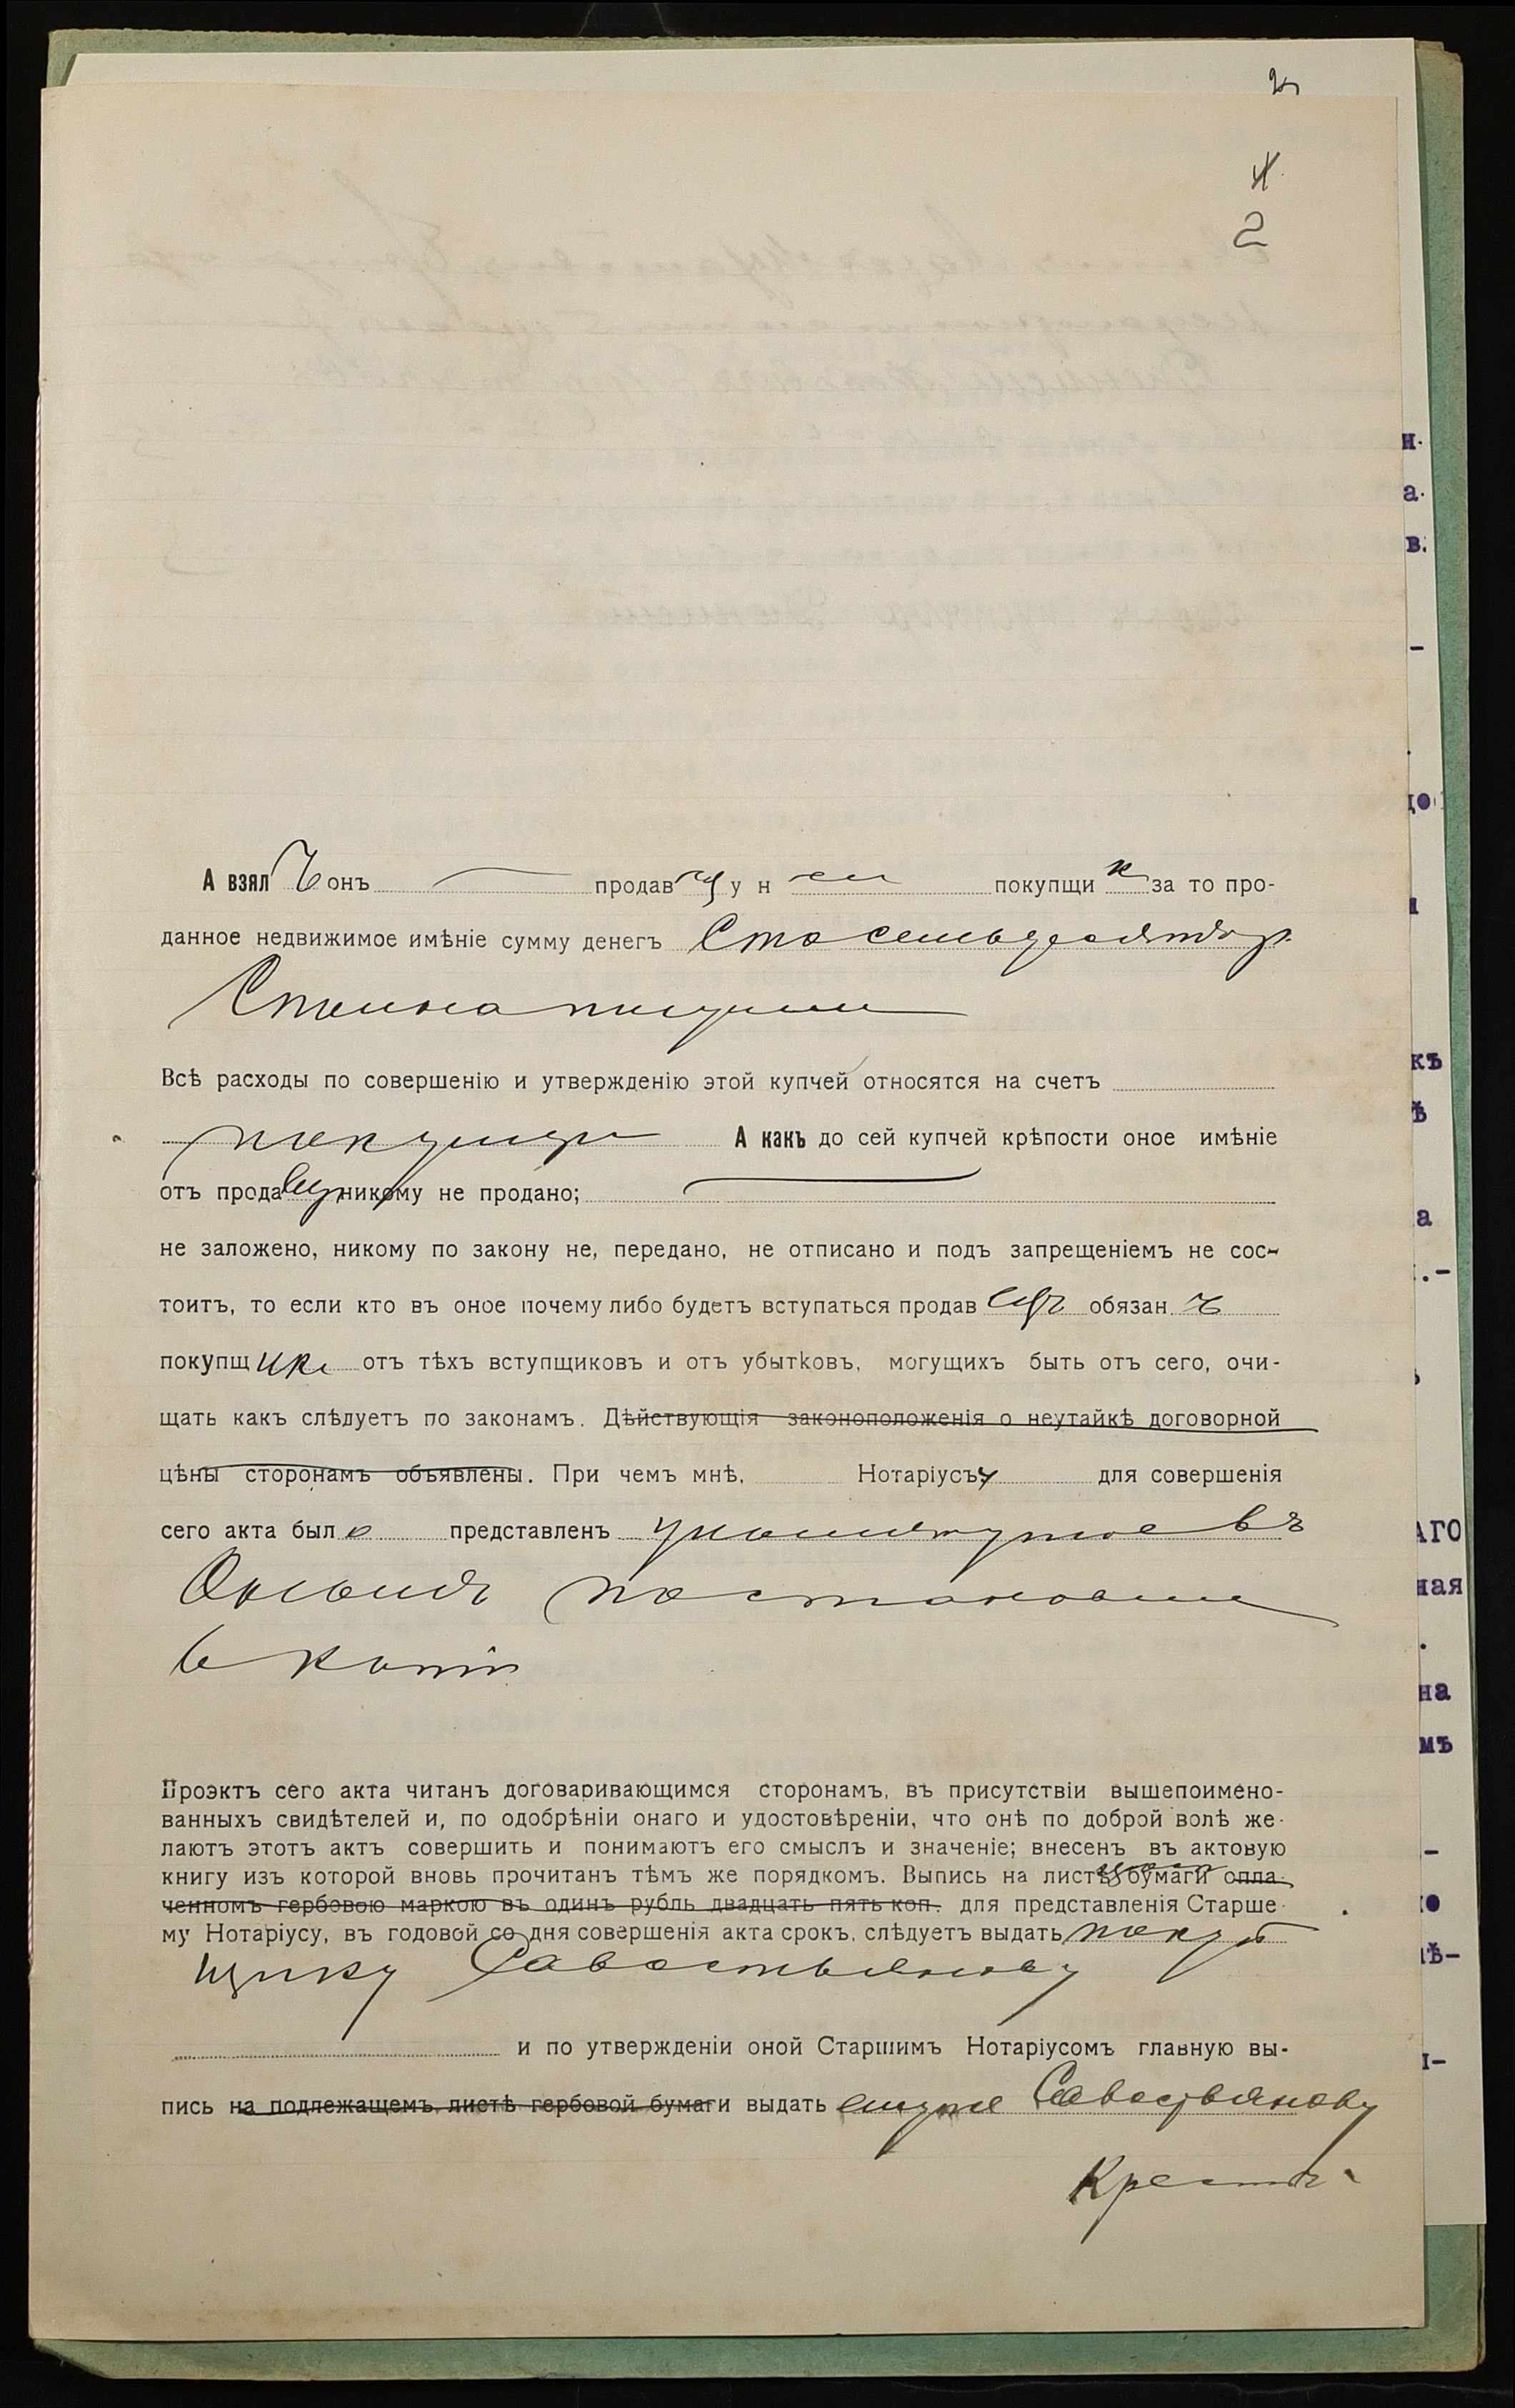 2
А взялъ онъ продавецъ у н покупщик за то про-
данное недвижимое имѣніе сумму денегъ Сто семьдесятъ р.
Всѣ расходы по совершенію и утвержденію этой купчей относятся на счетъ
А какъ до сей купчей крѣпости оное имѣніе
отъ продавца никому не продано;
не заложено, никому по закону не, передано, не отписано и подъ запрещеніемъ не сос-
тоитъ, то если кто въ оное почему либо будетъ вступаться продавецъ обязанъ
покупщика отъ тѣхъ вступщиковъ и отъ убытковъ, могущихъ быть отъ сего, очи-
щать какъ слѣдуетъ по законамъ. Дѣйствующія законоположенія о неутайкѣ договорной
цѣны сторонамъ объявлены. При чемъ мнѣ, Нотаріусъу для совершенія
сего акта было представленъ упомянутое въ
постановле
въ копіи
Проэктъ сего акта читанъ договаривающимся сторонамъ, въ присутствіи вышепоимено-
ванныхъ свидѣтелей и, по одобрѣніи онаго и удостовѣреніи, что онѣ по доброй волѣ же-
лаютъ этотъ актъ совершить и понимаютъ его смыслъ и значеніе; внесенъ въ актовую
книгу изъ которой вновь прочитанъ тѣмъ же порядкомъ. Выпись на листѣ бумаги опла-
ченномъ гербовою маркою въ одинъ рубль двадцать пять коп. для представленія Старше-
му Нотаріусу, въ годовой со дня совершенія акта срокъ, слѣдуетъ выдать покуп
щику Савостьянову
и по утвержденіи оной Старшимъ Нотаріусомъ главную вы-
пись на подлежащемъ листѣ гербовой бумаги выдать ему же Савостьянову
Крест